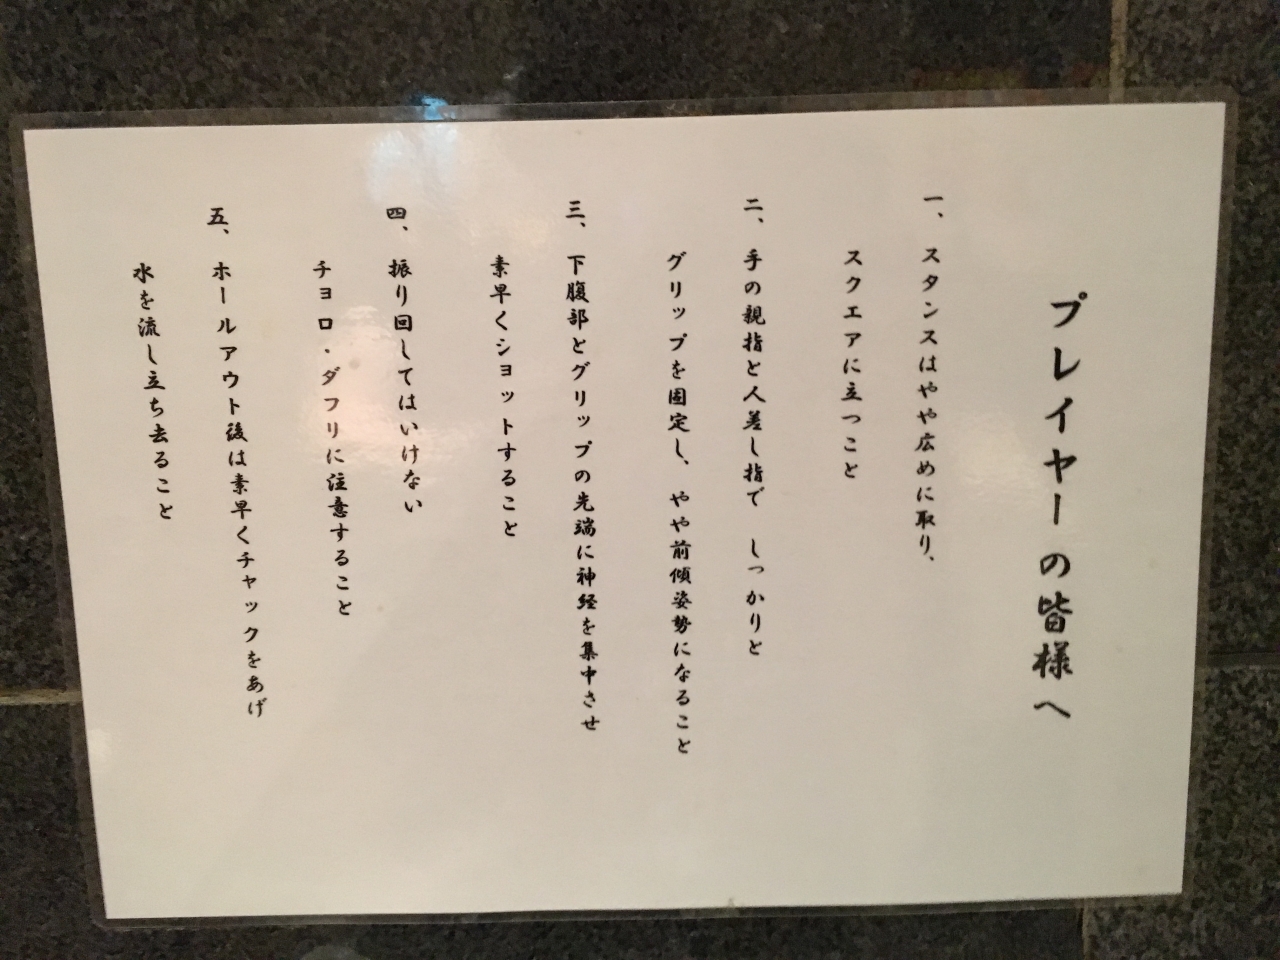 プレイヤーの皆様へ
一、スタンスはやや広めに取り、
スクエアに立つこと
二、手の親指と人差し指で　しっかりと
グリップを固定し、やや前傾姿勢になること
三、下腹部とグリップの先端に神経を集中させ
素早くショットすること
四、振り回してはいけない
チョロ・ダフリに注意すること
五、ホールアウト後は素早くチャックをあげ
水を流し立ち去ること